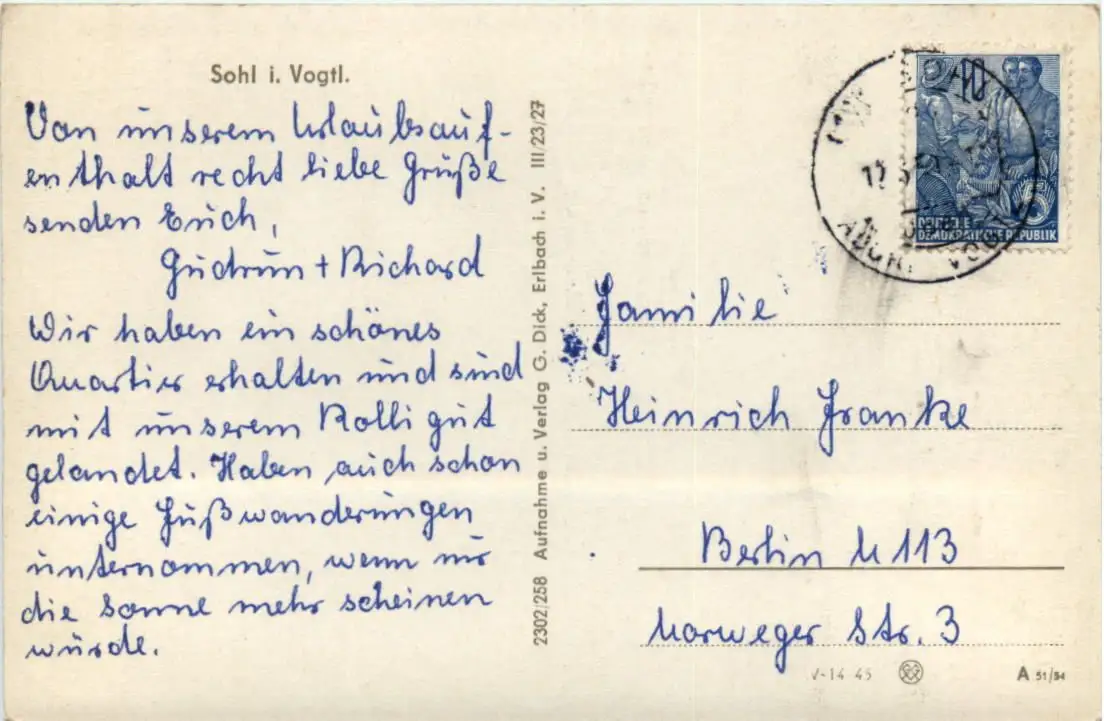 Sohl i. Vogtl.
Von unserem Urlaubsauf-
enthalt recht liebe Grüße
senden Euch,
Gudrun + Richard
Wir haben ein schönes
Quartier erhalten und sind
mit unserem Rolli gut
gelandet. Haben auch schon
einige Fußwanderungen
unternommen, wenn nur
die Sonne mehr scheinen
würde.
2302/258 Aufnahme u. Verlag G. Dick, Erlbach i. V. III/23/27
DEUTSCHE
DEMOKRATISCHE REPUBLIK
Familie
Heinrich Franke
Berlin N 113
Norweger Str. 3
V-14 45
A 51/54